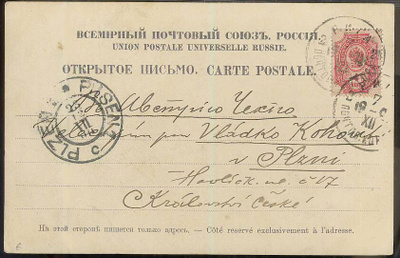 ВСЕМІРНЫЙ ПОЧТОВЫЙ СОЮЗЪ. РОССІЯ.
UNION POSTALE UNIVERSELLE RUSSIE.
ОТКРЫТОЕ ПИСЬМО. CARTE POSTALE.
PLZEŇ PILSEN
Въ Австрію Чехію
pan Vladko
v Plzni
Havlíčk. ul. č 17
Království České
На этой сторонѣ пишется только адресъ. — Côté réservé exclusivement à l'adresse.